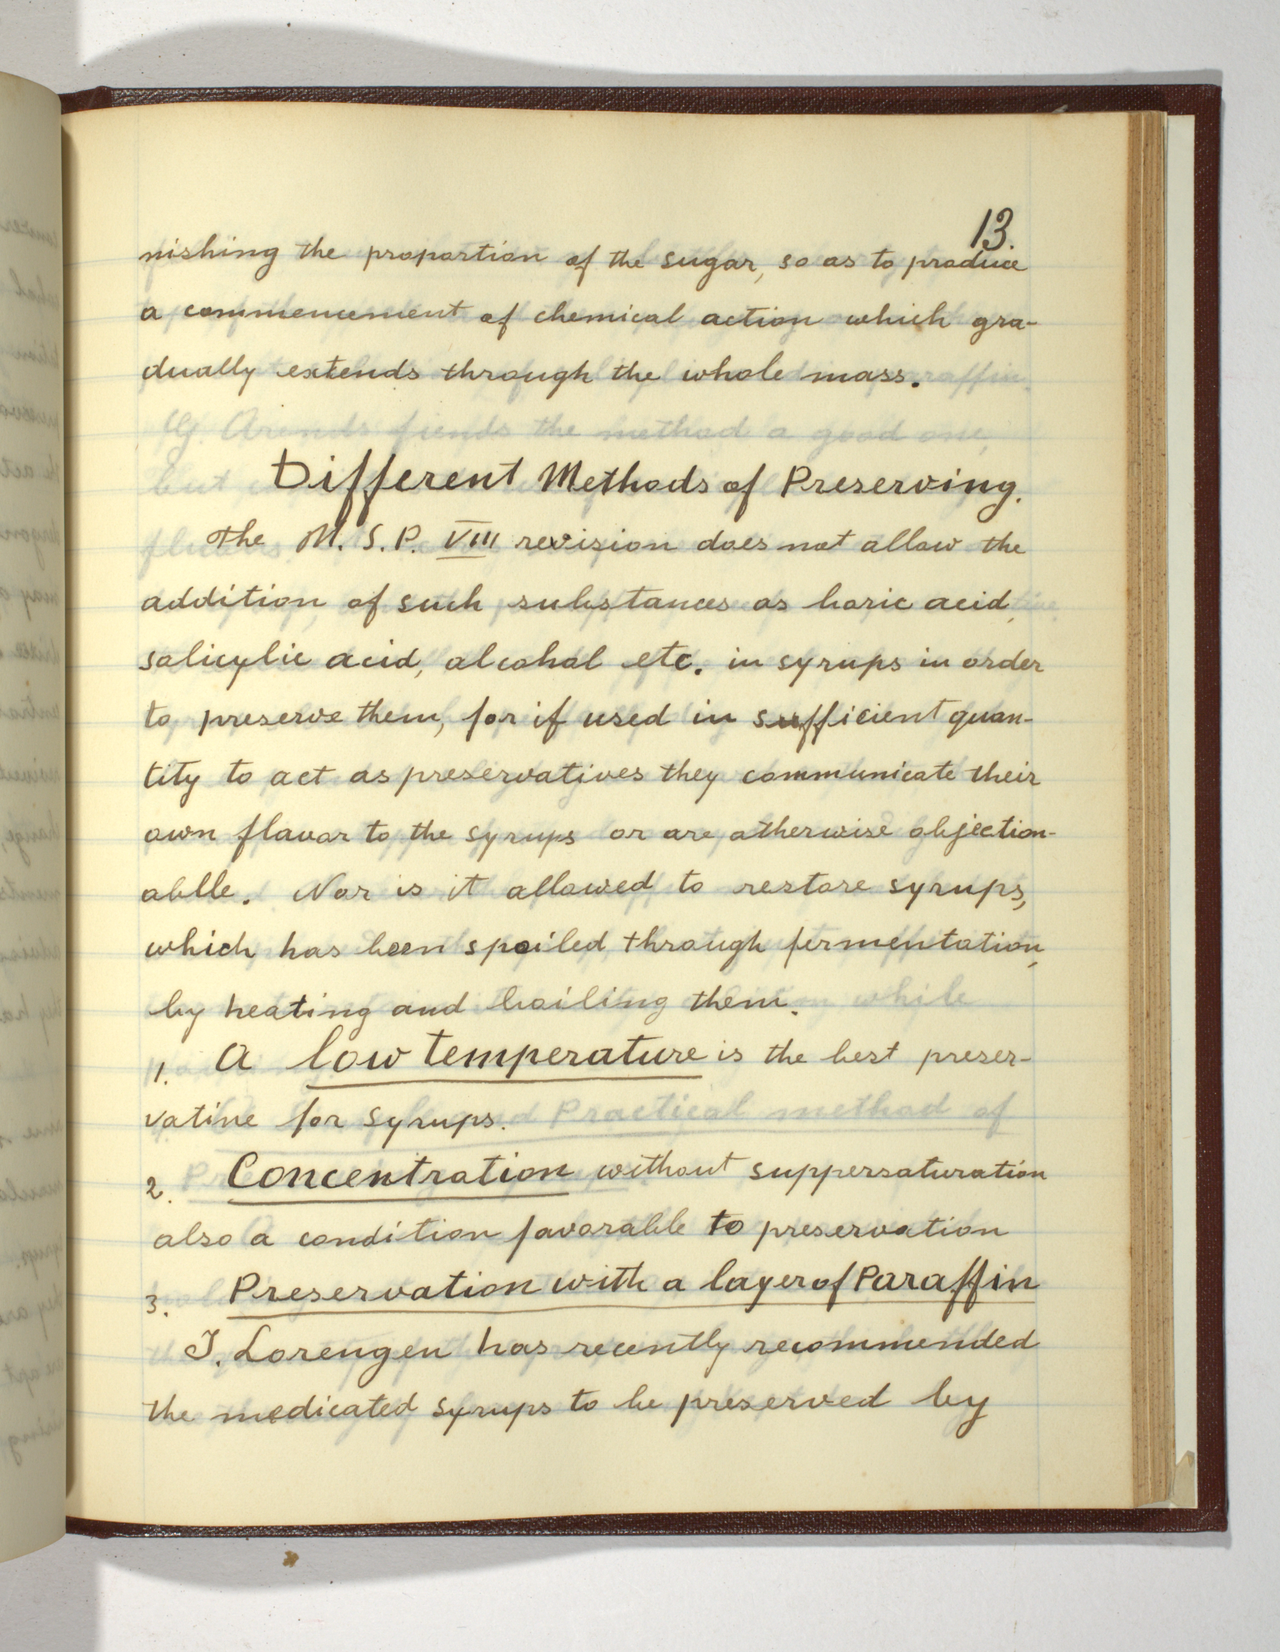 13.
nishing the proportion of the sugar, so as to produce
a commencement of chemical action which gra-
dually extends through the whole mass.
Different Methods of Preserving.
The M. S. P. VIII revision does not allow the
addition of such substances as boric acid,
salicylic acid, alcohol etc. in syrups in order
to preserve them, for if used in sufficient quan-
tity to act as preservatives they communicate their
own flavor to the syrups or are otherwise objection-
ablle. Nor is it allowed to restore syrups,
which has been spoiled through fermentation,
by heating and boiling them.
1. A low temperature is the best preser-
vative for syrups.
2. Concentration without suppersaturation
also a condition favorable to preservation
3. Preservation with a layer of Paraffin
J. Lorengen has recently recommended
the medicated syrups to be preserved by